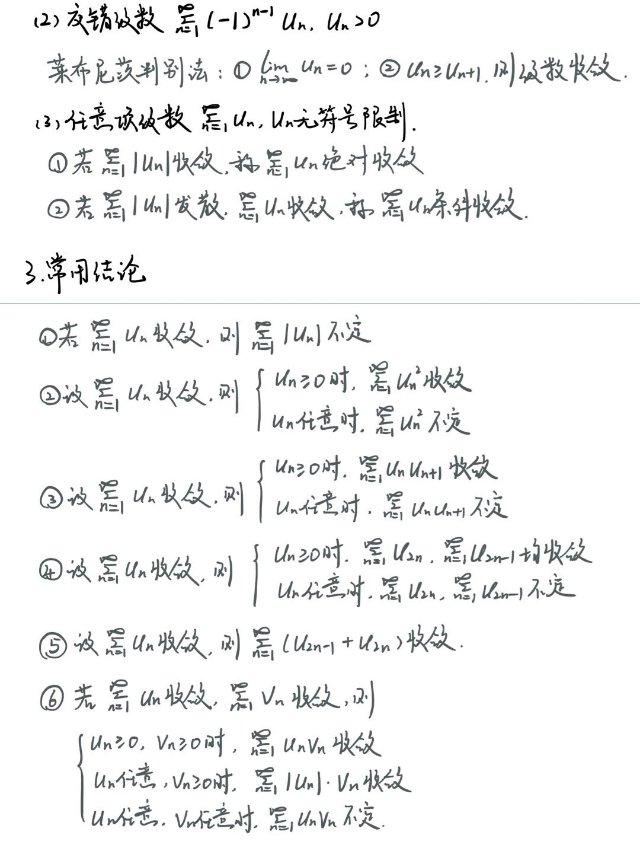 (2) 交错级数 ∑_{n=1}^{∞} (-1)^{n-1} Un, Un>0
莱布尼茨判别法：① lim_{n→∞} Un=0；② Un≥Un+1, 则级数收敛.
(3) 任意项级数 ∑_{n=1}^{∞} Un, Un无符号限制.
① 若 ∑_{n=1}^{∞} |Un| 收敛, 称 ∑_{n=1}^{∞} Un 绝对收敛
② 若 ∑_{n=1}^{∞} |Un| 发散, ∑_{n=1}^{∞} Un 收敛, 称 ∑_{n=1}^{∞} Un 条件收敛.
3.常用结论
① 若 ∑_{n=1}^{∞} Un 收敛, 则 ∑_{n=1}^{∞} |Un| 不定
② 设 ∑_{n=1}^{∞} Un 收敛, 则 { Un≥0时, ∑_{n=1}^{∞} Un² 收敛
Un任意时, ∑_{n=1}^{∞} Un² 不定
③ 设 ∑_{n=1}^{∞} Un 收敛, 则 { Un≥0时, ∑_{n=1}^{∞} UnUn+1 收敛
Un任意时, ∑_{n=1}^{∞} UnUn+1 不定
④ 设 ∑_{n=1}^{∞} Un 收敛, 则 { Un≥0时, ∑_{n=1}^{∞} U2n, ∑_{n=1}^{∞} U2n-1 均收敛
Un任意时, ∑_{n=1}^{∞} U2n, ∑_{n=1}^{∞} U2n-1 不定
⑤ 设 ∑_{n=1}^{∞} Un 收敛, 则 ∑_{n=1}^{∞} (U2n-1 + U2n) 收敛.
⑥ 若 ∑_{n=1}^{∞} Un 收敛, ∑_{n=1}^{∞} Vn 收敛, 则
{ Un≥0, Vn≥0时, ∑_{n=1}^{∞} UnVn 收敛
Un任意, Vn≥0时, ∑_{n=1}^{∞} |Un|·Vn 收敛
Un任意, Vn任意时, ∑_{n=1}^{∞} UnVn 不定.